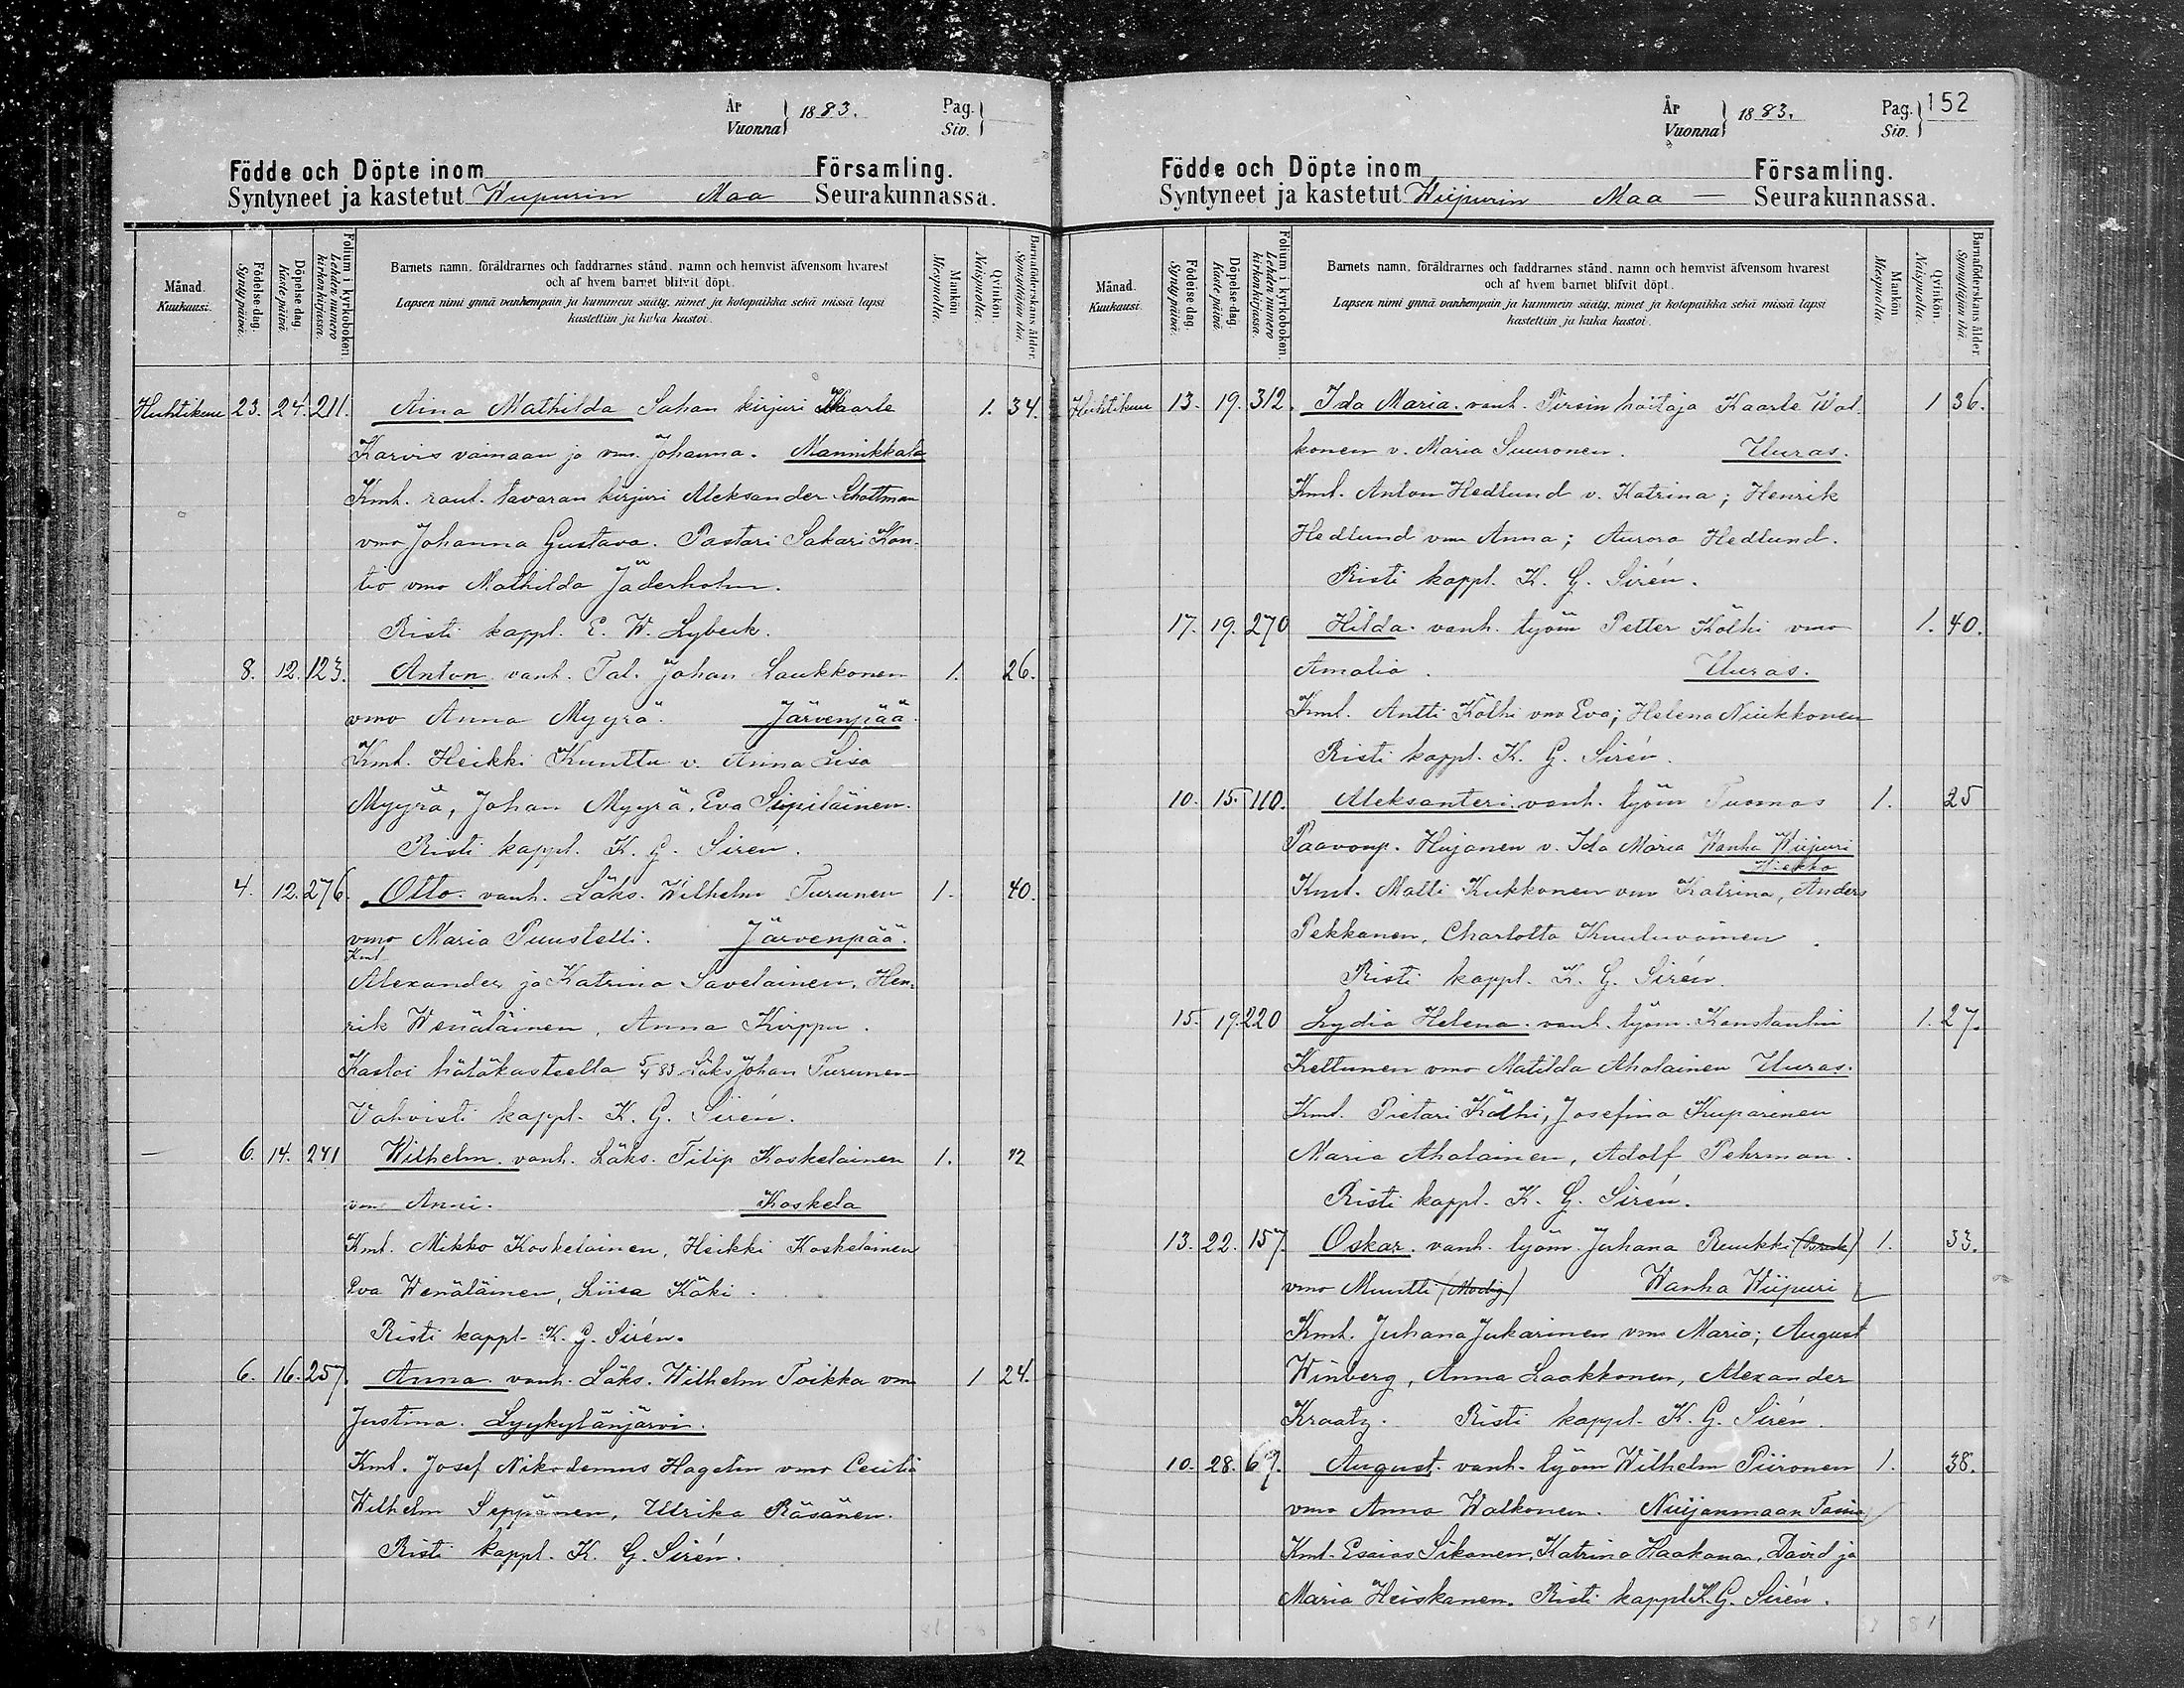 År
Vuonna } 1883.
Pag.
Siv. }
Födde och Döpte inom Församling.
Syntyneet ja kastetut Wiipurin Maa Seurakunnassa.
Månad.
Kuukausi.
Födelse-dag.
Synty päivä.
Döpelse-dag.
Kaste-päivä.
Folium i kyrkoboken
Lehden numero kirkonkirjassa.
Barnets namn, föräldrarnes och faddrarnes stånd, namn och hemvist äfvensom hvarest
och af hvem barnet blifvit döpt.
Lapsen nimi ynnä vanhempain ja kummein sääty, nimet ja kotopaikka sekä missä lapsi
kastettiin ja kuka kastoi.
Mankön.
Miespuolia.
Qvinkön.
Naispuolia.
Barnaföderskans ålder.
Synnyttäjän ikä.
Huhtikuu 23. 24. 211. Aina Mathilda Sahan kirjuri Kaarle 1. 34.
Karvis vainaan ja vmo. Johanna. Mannikkala
Kmt. raut. tavaran kirjuri Aleksander Schottman
vmo Johanna Gustava. Pastori Sakari Kon-
tio vmo Mathilda Jäderholm.
Risti kappl. E. W. Lybeck.
8. 12. 123. Anton vanh. Tal. Johan Laukkonen 1. 26.
vmo Anna Myyrä. Järvenpää.
Kmt. Heikki Kunttu v. Anna Lisa
Myyrä, Johan Myyrä, Eva Sipiläinen.
Risti kappl. K. G. Sirén.
4. 12. 276. Otto. vanh. Läks. Wilhelm Turunen 1. 40.
vmo Maria Puustelli. Järvenpää.
Kmt
Alexander ja Katrina Savelainen, Hen-
rik Wenäläinen, Anna Kirppu.
Kastoi hätäkasteella 5/4 83 Läks Johan Turunen
Vahvisti kappl. K. G. Sirén.
— 6. 14. 241 Wilhelm. vanh. Läks. Filip Koskelainen 1.
vmo Anni. Koskela
Kmt. Mikko Koskelainen, Heikki Koskelainen
Eva Wenäläinen, Liisa Käki.
Risti kappl. K. G. Sirén.
6. 16. 257. Anna vanh. Läks. Wilhelm Toikka vmo 1 24.
Justina. Lyykylänjärvi.
Kmt. Josef Nikodemus Hagelin vmo Cecilia
Wilhelm Seppänen, Ulrika Räsänen.
Risti kappl. K. G. Sirén.
År
Vuonna } 1883.
Pag.
Siv. } 152
Födde och Döpte inom Församling.
Syntyneet ja kastetut Wiipurin Maa — Seurakunnassa.
Månad.
Kuukausi
Födelse-dag.
Synty päivä.
Döpelse-dag
Kaste-päivä
Folium i kyrkoboken.
Lehden numero kirkonkirjassa.
Barnets namn, föräldrarnes och faddrarnes stånd, namn och hemvist äfvensom hvarest
och af hvem barnet blifvit döpt.
Lapsen nimi ynnä vanhempain ja kummein sääty, nimet ja kotopaikka sekä missä lapsi
kastettiin ja kuka kastoi.
Mankön
Miespuolia.
Qvinkön.
Naispuolia.
Barnaföderskans ålder
Synnyttäjän ikä.
Huhtikuu 13. 19. 312. Ida Maria. vanh. Pirsin hoitaja Kaarle Wal- 1 36.
konen v. Maria Suuronen. Uuras.
Kmt. Anton Hedlund v. Katrina; Henrik
Hedlund vmo Anna; Aurora Hedlund.
Risti kappl. K. G. Sirén.
17. 19. 270 Hilda. vanh. työm Petter Kölhi vmo 1. 40.
Amalia. Uuras.
Kmt. Antti Kölhi vmo Eva; Helena Niukkonen
Risti kappl. K. G. Sirén.
10. 15. 110. Aleksanteri. vanh. työm Tuomas 1. 25
Paavonp. Hujanen v. Ida Maria Wanha Wiipuri
Kiekko
Kmt. Matti Kukkonen vmo Katrina, Anders
Pekkanen, Charlotta Kuuluvainen.
Risti kappl. K. G. Sirén.
15. 19. 220 Lydia Helena. vanh. työm. Konstantin 1. 27.
Keltunen vmo Matilda Aholainen Uuras.
Kmt. Pietari Kölhi, Josefina Kuparinen
Maria Aholainen, Adolf Pehrman.
Risti kappl. K. G. Sirén.
13. 22. 157. Oskar. vanh. työm. Juhana Ruukki 1. 33.
vmo Muntti Wanha Wiipuri
Kmt. Juhana Jukarinen vmo Maria; August
Winberg, Anna Laakkonen, Alexander
Kraatz. Risti kappl. K. G. Sirén.
10. 28. 67. August. vanh. työm Wilhelm Piironen 1. 38.
vmo Anna Walkonen. Nuijanmaan
Kmt. Esaias Sikanen, Katrina Haakana, David ja
Maria Heiskanen. Risti kappl K. G. Sirén.